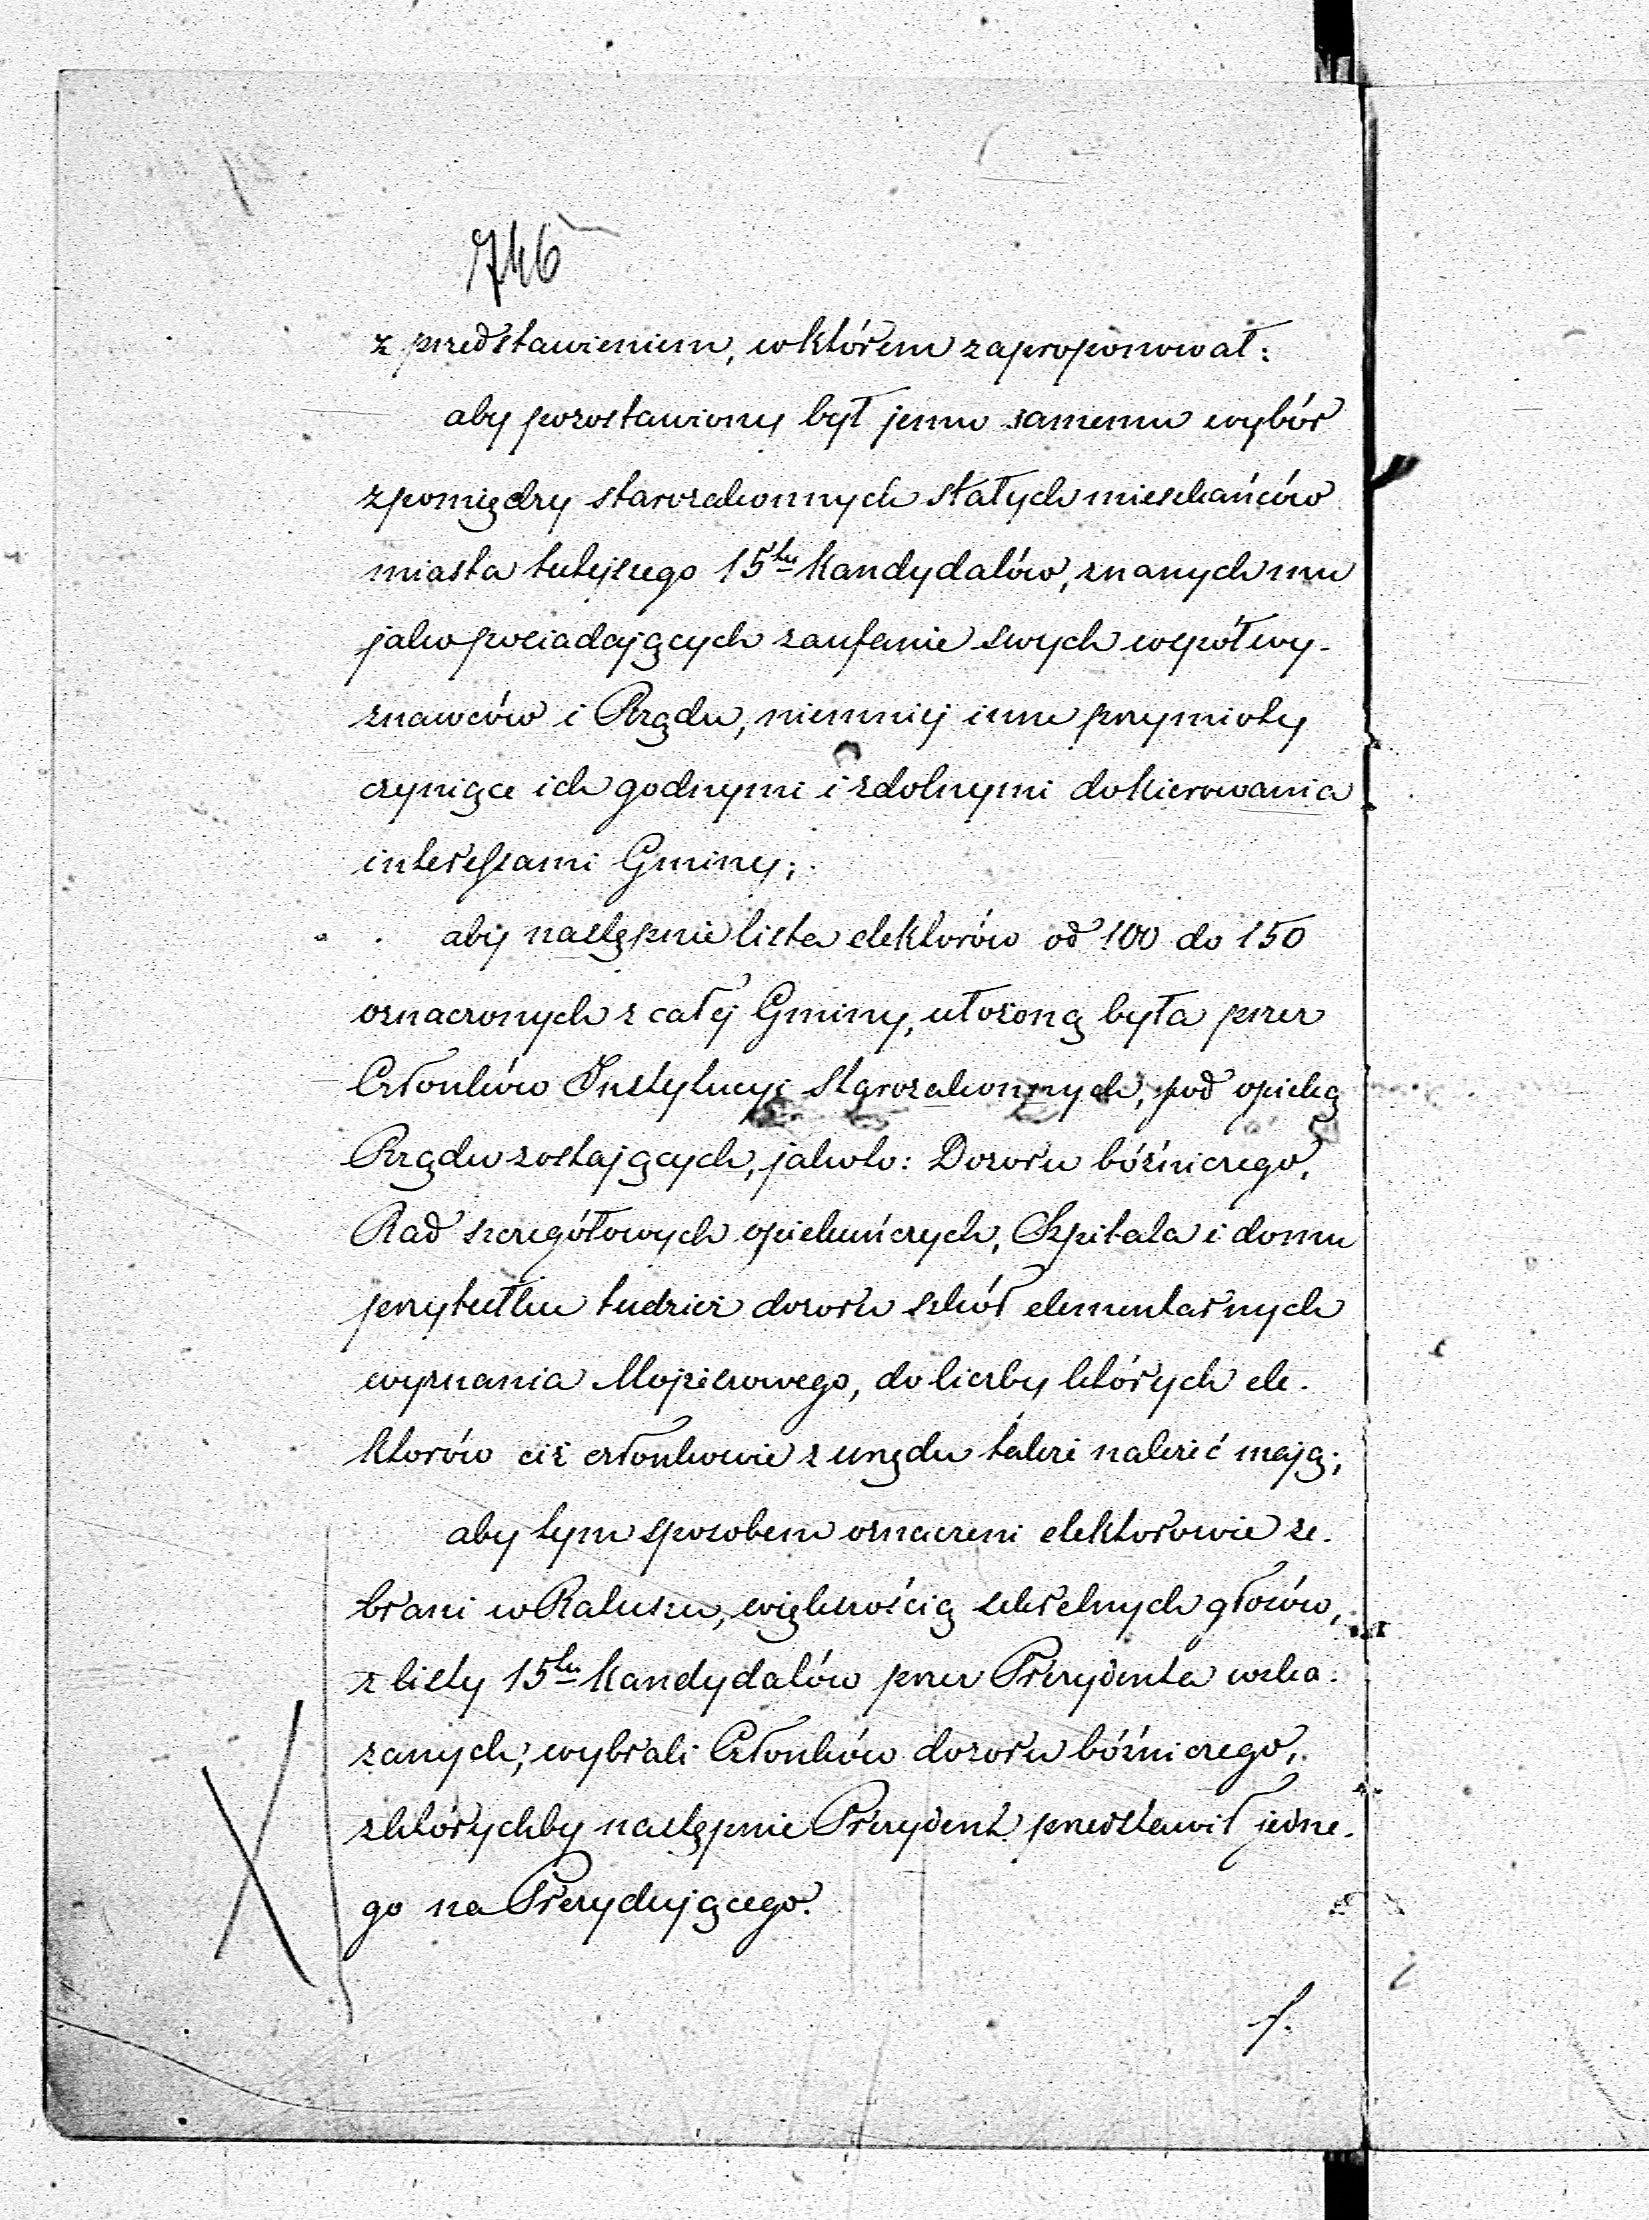 746
z przedstawieniem, w którem zaproponował:
aby pozostawiony był jemu samemu wybór
zpomiędzy starozakonnych stałych mieszkańców
miasta tutejszego 15tu Kandydatów, znanych mu
jako posiadających zaufanie swych współwy-
znawców i Rządu, niemniej inne przymioty
czyniące ich godnymi i zdolnymi do kierowania
interessami Gminy;
aby następnie lista elektorów od 100 do 150
oznaczonych z całej Gminy, ułożoną była przez
Członków Instytucyi Starozakonnych, pod opieką
Rządu zostających, jakoto: Dozoru bóżniczego,
Rad szczegółowych opiekuńczych, Szpitala i domu
przytułku tudzież dozoru szkół elementarnych
wyznania Mojżeszowego, do liczby których ele-
ktorów ciż członkowie z urzędu także należeć mają;
aby tym sposobem oznaczeni elektorowie ze-
brani w Ratuszu, większością sekretnych głosów,
z listy 15tu Kandydatów przez Prezydenta wska-
zanych, wybrali Członków dozoru bóżniczego,
z którychby następnie Prezydent przedstawił jedne-
go na Prezydującego.